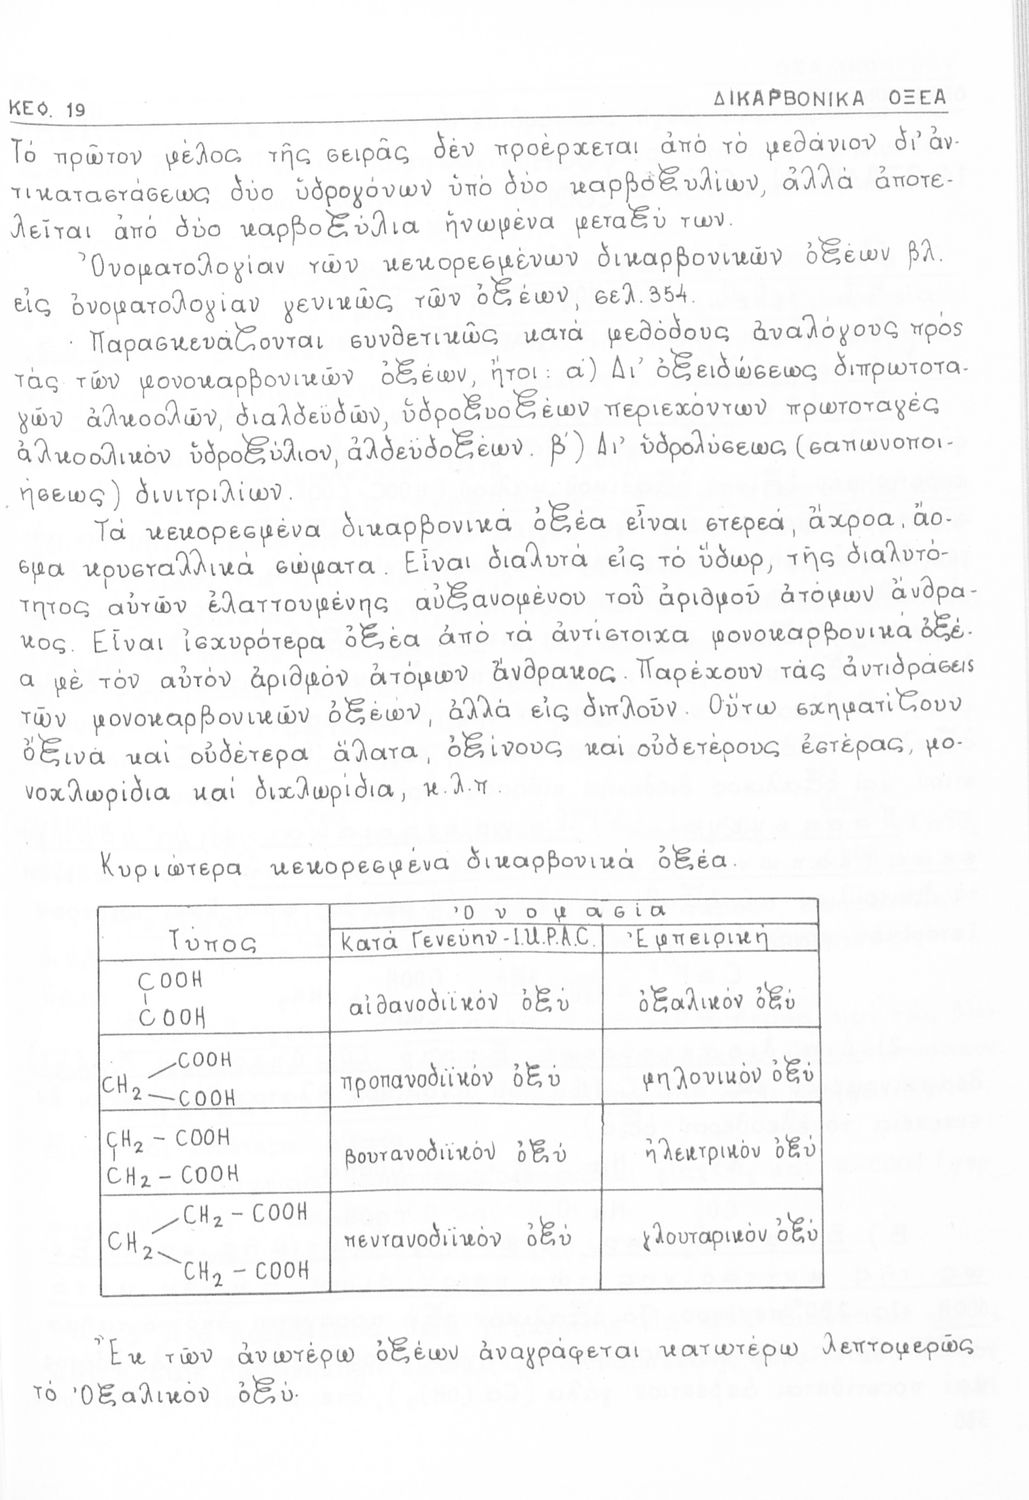 ΚΕΦ. 19
ΔΙΚΑΡΒΟΝΙΚΑ ΟΞΕΑ
Τό πρῶτον μέλος τῆς σειρᾶς δέν προέρχεται ἀπό τό μεθάνιον δι' ἀν-
τικαταστάσεως δύο ὑδρογόνων ὑπό δύο καρβοξυλίων, ἀλλά ἀποτε-
λεῖται ἀπό δύο καρβοξύλια ἡνωμένα μεταξύ των.
Ὀνοματολογίαν τῶν κεκορεσμένων δικαρβονικῶν ὀξέων βλ.
εἰς ὀνοματολογίαν γενικῶς τῶν ὀξέων, σελ. 354.
Παρασκευάζονται συνθετικῶς κατά μεθόδους ἀναλόγους πρός
τάς τῶν μονοκαρβονικῶν ὀξέων, ἤτοι: α) Δι' ὀξειδώσεως διπρωτοτα-
γῶν ἀλκοολῶν, διαλδευδῶν, ὑδροξυοξέων περιεχόντων πρωτοταγές
ἀλκοολικόν ὑδροξύλιον, ἀλδευδοξέων. β') Δι' ὑδρολύσεως (σαπωνοποι-
ήσεως) δινιτριλίων.
Τά κεκορεσμένα δικαρβονικά ὀξέα εἶναι στερεά, ἄχροα, ἄο-
σμα κρυσταλλικά σώματα. Εἶναι διαλυτά εἰς τό ὕδωρ, τῆς διαλυτό-
τητος αὐτῶν ἐλαττουμένης αὐξανομένου τοῦ ἀριθμοῦ ἀτόμων ἄνθρα-
κος. Εἶναι ἰσχυρότερα ὀξέα ἀπό τά ἀντίστοιχα μονοκαρβονικά ὀξέ-
α μέ τόν αὐτόν ἀριθμόν ἀτόμων ἄνθρακος. Παρέχουν τάς ἀντιδράσεις
τῶν μονοκαρβονικῶν ὀξέων, ἀλλά εἰς διπλοῦν. Οὕτω σχηματίζουν
ὄξινα καί οὐδέτερα ἄλατα, ὀξίνους καί οὐδετέρους ἐστέρας, μο-
νοχλωρίδια καί διχλωρίδια, κ.λ.π.
Κυριώτερα κεκορεσμένα δικαρβονικά ὀξέα.
Τύπος
Ὀνομασία
Κατά Γενεύην-I.U.P.A.C.
Ἐμπειρική
COOH
COOH
αἰθανοδιϊκόν ὀξύ
ὀξαλικόν ὀξύ
COOH
CH2
COOH
προπανοδιϊκόν ὀξύ
μηλονικόν ὀξύ
CH2 - COOH
CH2 - COOH
βουτανοδιϊκόν ὀξύ
ἠλεκτρικόν ὀξύ
CH2 - COOH
CH2
CH2 - COOH
πεντανοδιϊκόν ὀξύ
γλουταρικόν ὀξύ
Ἐκ τῶν ἀνωτέρω ὀξέων ἀναγράφεται κατωτέρω λεπτομερῶς
τό Ὀξαλικόν ὀξύ.